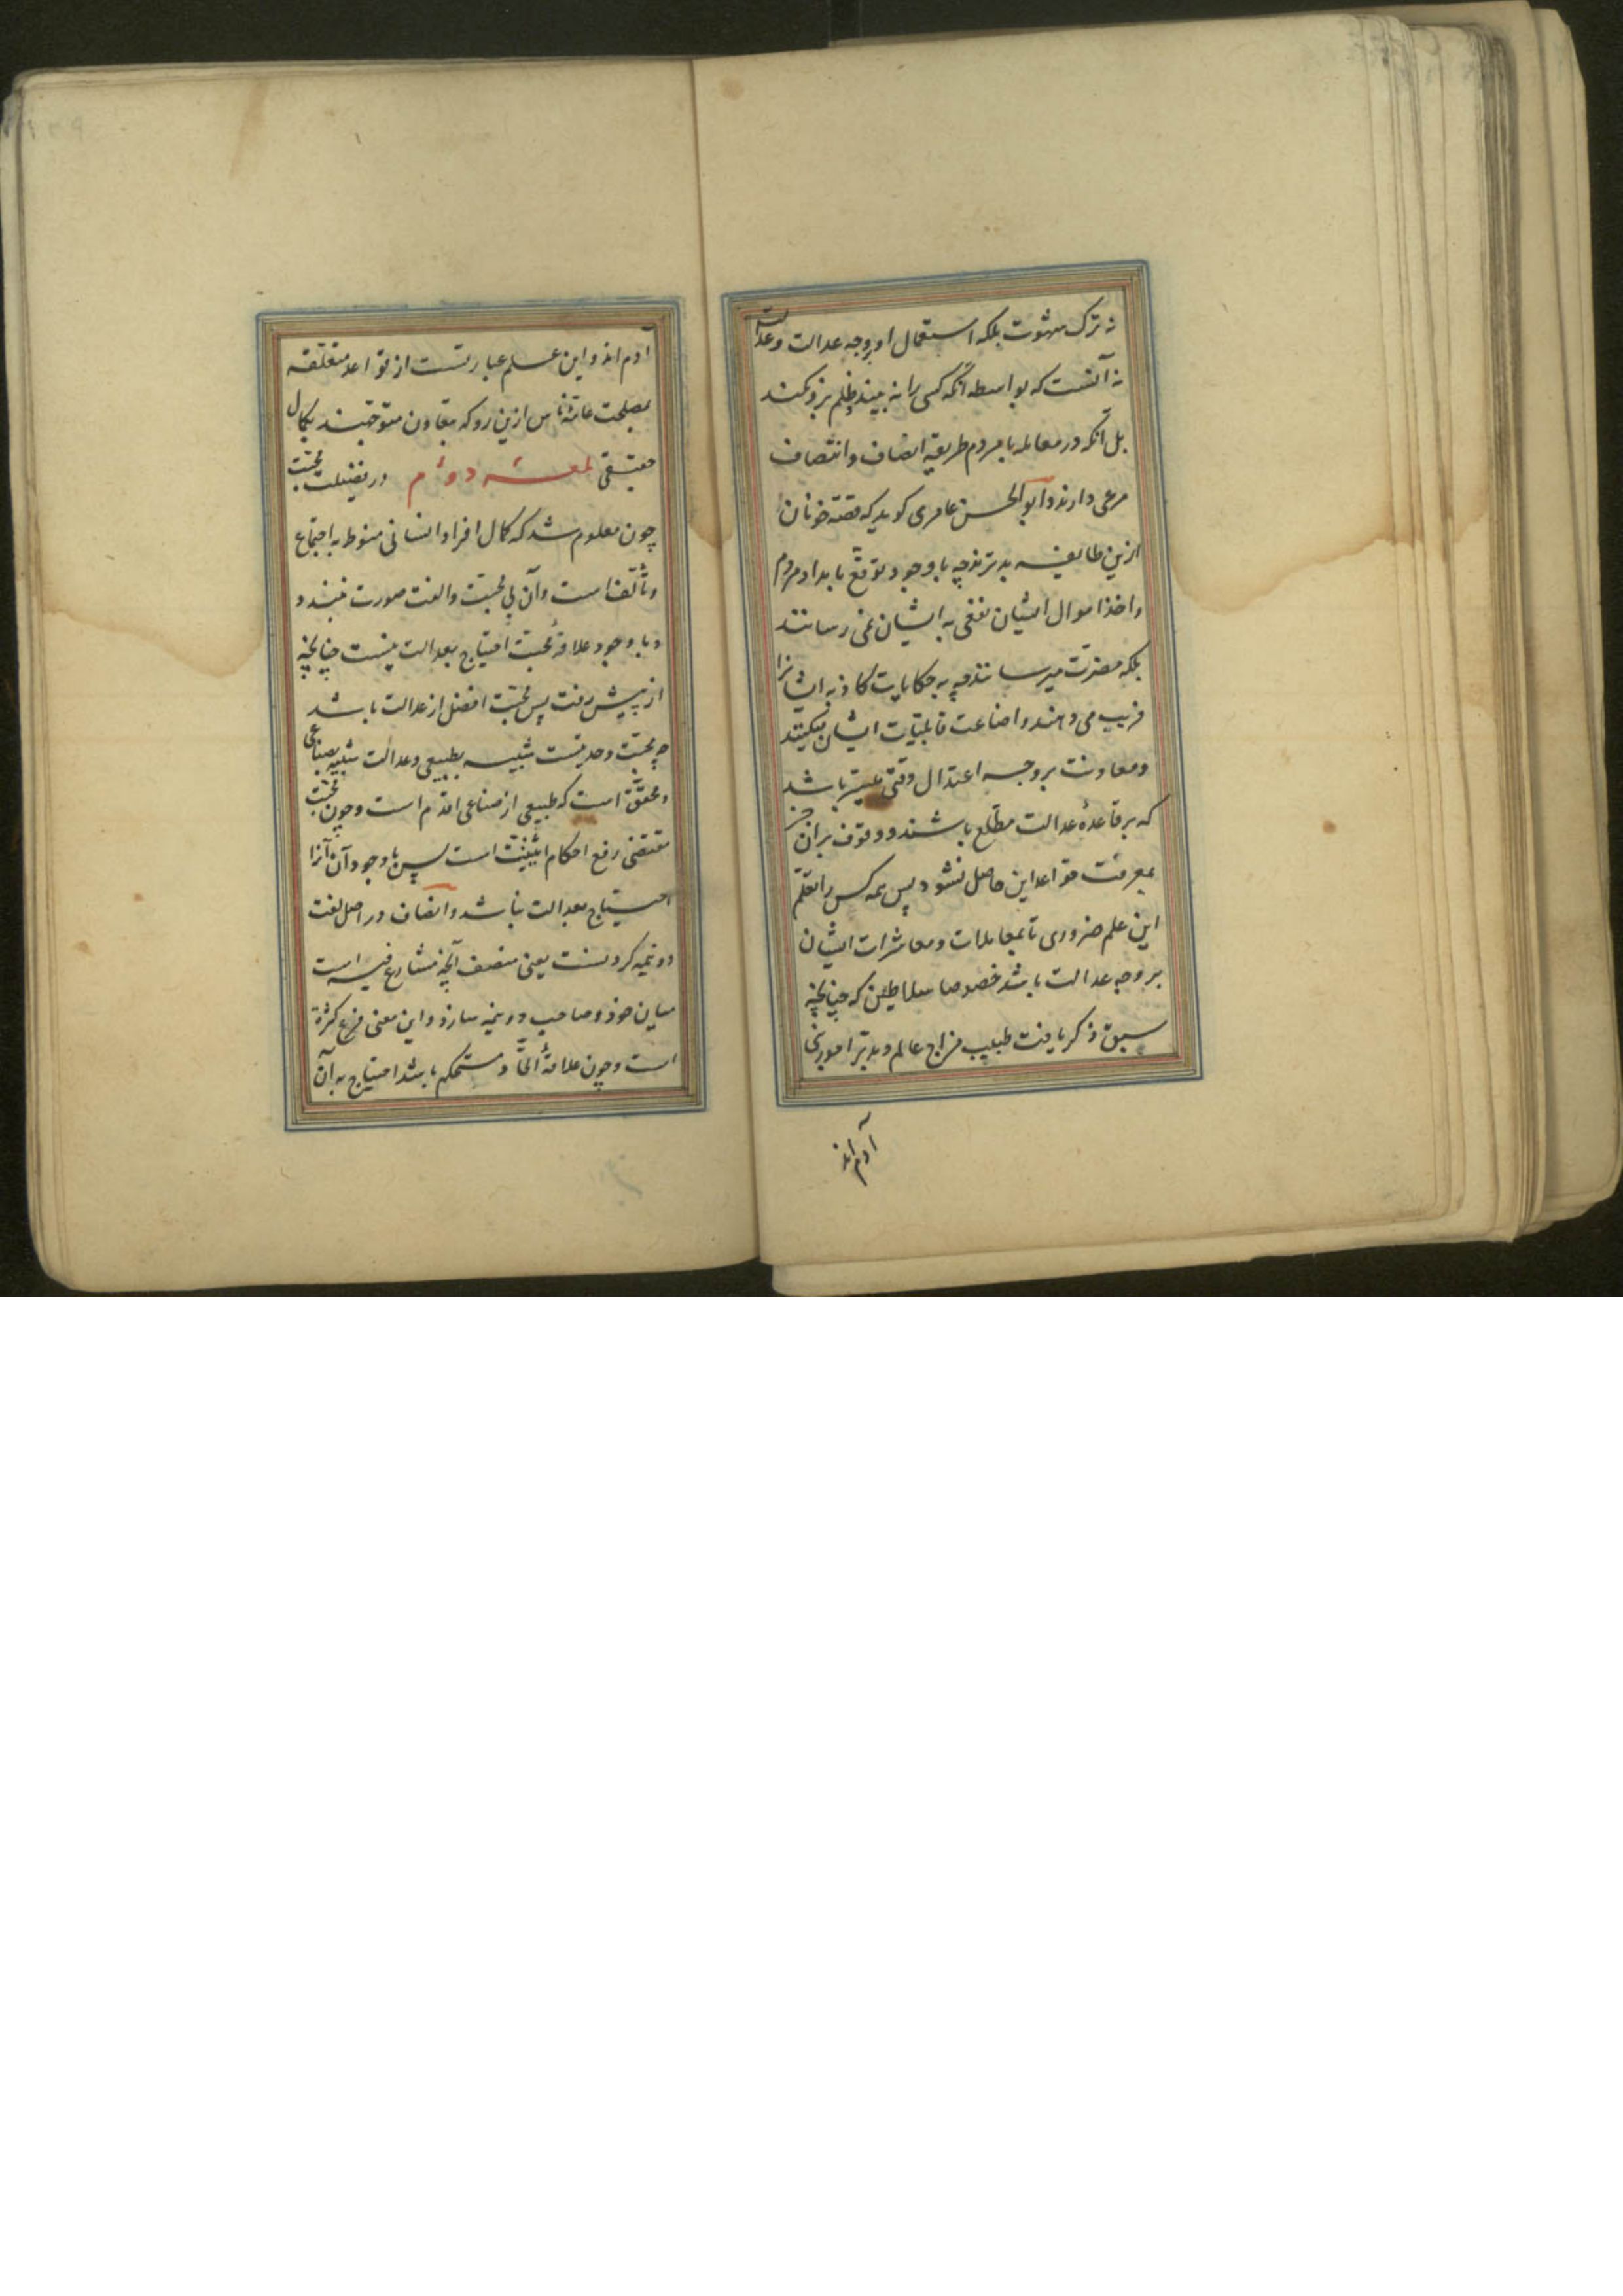 نه ترک شهوت بلکه استعمال او بروجه عدالت و عدالت
نه آنست که بواسطه آنکه کسی را نه بیند ظلم برو نکند
بل آنکه در معامله با مردم طریقه انصاف و انتصاف
مرعی دارند و ابوالحسن عامری کوید که قصه خوانان
ازین طایفه بدترند چه با وجود توقع بامداد مردم
و اخذ اموال ایشان نفعی به ایشان نمی رسانند
بلکه مضرت میرسانند چه به حکایات کاذبه ایشانرا
فریب می دهند و اضاعت قابلیات ایشان میکنند
و معاونت بروجه اعتدال وقتی میسر باشد
که بر قاعدهٔ عدالت مطلع باشند و وقوف بران جز
بمعرفت قواعد این حاصل نشود پس همه کس را تعلم
این علم ضروری تا بمعاملات و معاشرات ایشان
بر وجه عدالت باشد خصوصا سلاطین که چنانچه
سبق ذکر یافت طبیب مزاج عالم و مدبر امور بنی
آدم اند
آدم اند و این علم عبارتست از قواعد متعلقه
بمصلحت عامهٔ ناس ازین رو که بتعاون متوجهند بکمال
حقیقی لمعه دوم در فضیلت محبت
چون معلوم شد که کمال افراد انسانی منوط به اجتماع
و تألف است و آن بی محبت و الفت صورت نبندد
و با وجود علاقهٔ محبت احتیاج بعدالت نیست چنانچه
از پیش رفت پس محبت افضل از عدالت باشد
چه محبت وحدتیست شبیه بطبیعی و عدالت شبیه بصناعی
و محقق است که طبیعی از صناعی اقدم است و چون محبت
مقتضی رفع احکام اثنینیت است پس با وجود آن آنرا
احتیاج بعدالت نباشد و انصاف در اصل لغت
دو نیمه کردنست یعنی منصف آنچه متنازع فیه است
میان خود و صاحب دو نیمه سازد و این معنی فرع کثرة
است و چون علاقهٔ اتحاد مستحکم باشد احتیاج به آن